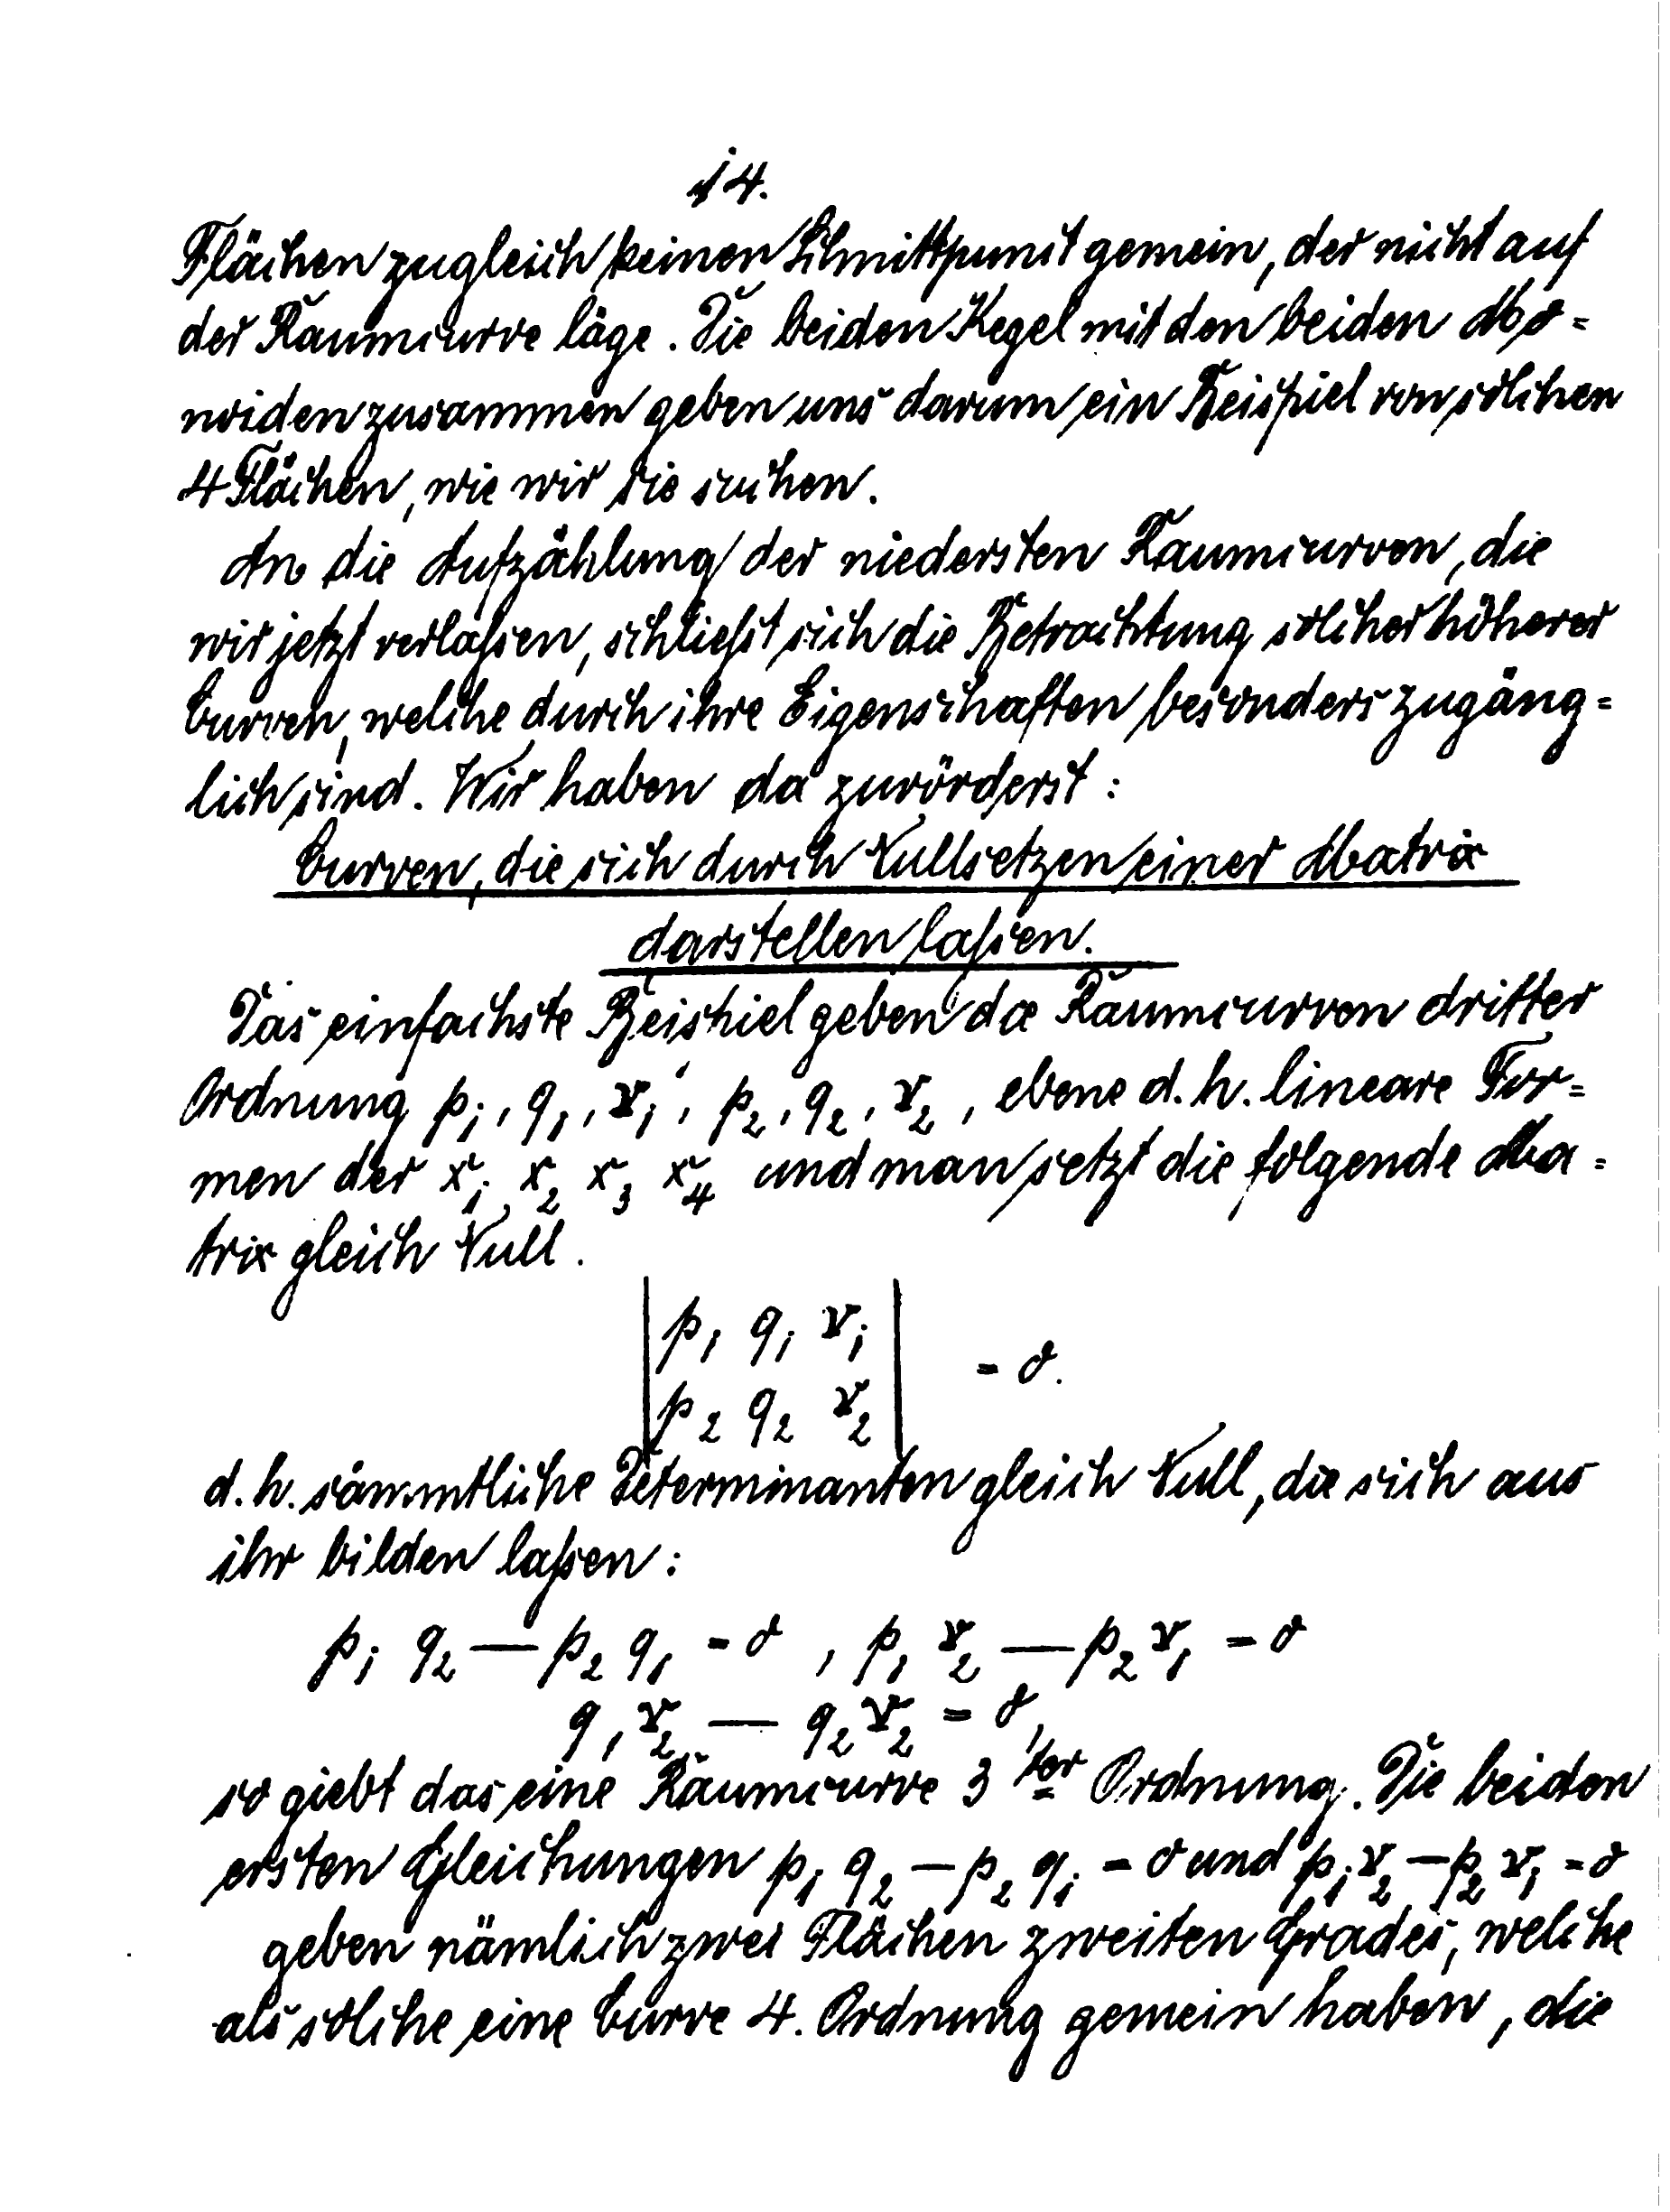 14.
Flächen zugleich keinen Schnittpunct gemein, der nicht auf
der Raumcurve läge. Die beiden Kegel mit den beiden Mo-
noiden zusammen geben uns darum ein Beispiel von solchen
4 Flächen, wie wir sie suchen.
An die Aufzählung der niedersten Raumcurven, die
wir jetzt verlaßen, schließt sich die Betrachtung solcher höherer
Curven, welche durch ihre Eigenschaften besonders zugäng=
lich sind. Wir haben da zuvörderst:
Curven, die sich durch Nullsetzen einer Matrix
darstellen laßen.
Das einfachste Beispiel geben die Raumcurven dritter
Ordnung p₁, q₁, r₁, p₂, q₂, r₂, ebene d. h. lineare For=
men der x₁ x₂ x₃ x₄ und man setzt die folgende Ma=
trix gleich Null.
| p₁ q₁ r₁ |
| p₂ q₂ r₂ | = 0.
d. h. sämmtliche Determinanten gleich Null, die sich aus
ihr bilden laßen:
p₁ q₂ — p₂ q₁ = 0, p₁ r₂ — p₂ r₁ = 0
q₁ r₂ — q₂ r₂ = 0,
so giebt das eine Raumcurve 3ter Ordnung. Die beiden
ersten Gleichungen p₁ q₂ — p₂ q₁ = 0 und p₁ r₂ — p₂ r₁ = 0
geben nämlich zwei Flächen zweiten Grades, welche
als solche eine Curve 4. Ordnung gemein haben, die